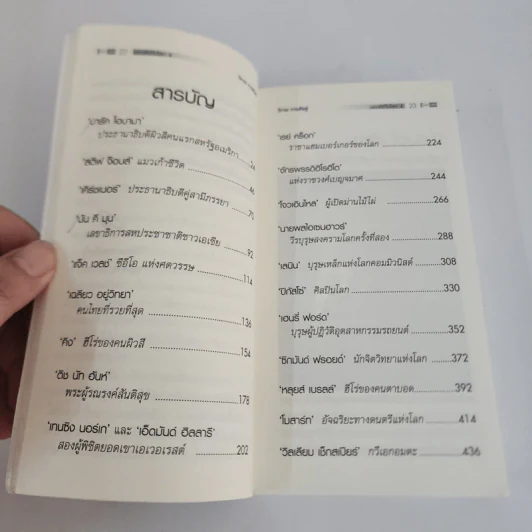 สารบัญ
'บารัค โอบามา'
ประธานาธิบดีผิวสีคนแรกสหรัฐอเมริกา 24
'สตีฟ จ๊อบส์' แมวเก้าชีวิต 46
'เคิร์ชเนอร์' ประธานาธิบดีคู่สามีภรรยา 70
'บัน คี มุน'
เลขาธิการสหประชาชาติชาวเอเชีย 92
'แจ็ค เวลช์' ซีอีโอ แห่งศตวรรษ 114
'เฉลียว อยู่วิทยา'
คนไทยที่รวยที่สุด 136
'คิง' ฮีโร่ของคนผิวสี 154
'ติช นัท ฮันห์'
พระผู้รณรงค์สันติสุข 178
'เทนซิง นอร์เก' และ 'เอ็ดมันด์ ฮิลลารี'
สองผู้พิชิตยอดเขาเอเวอเรสต์ 202
23
'เรย์ คร็อก'
ราชาแฮมเบอร์เกอร์ของโลก 224
'จักรพรรดิฮิโรฮิโต'
แห่งราชวงศ์เบญจมาศ 244
'โจวเอินไหล' ผู้เปิดม่านไม้ไผ่ 266
'นายพลไอเซนฮาวร์'
วีรบุรุษสงครามโลกครั้งที่สอง 288
'เลนิน' บุรุษเหล็กแห่งโลกคอมมิวนิสต์ 308
'ปิกัสโซ่' ศิลปินโลก 330
'เฮนรี่ ฟอร์ด'
บุรุษผู้ปฏิวัติอุตสาหกรรมรถยนต์ 352
'ซิกมันด์ ฟรอยด์' นักจิตวิทยาแห่งโลก 372
'หลุยส์ เบรลล์' ฮีโร่ของคนตาบอด 392
'โมสาร์ท' อัจฉริยะทางดนตรีแห่งโลก 414
'วิลเลียม เช็กสเปียร์' กวีเอกอมตะ 436